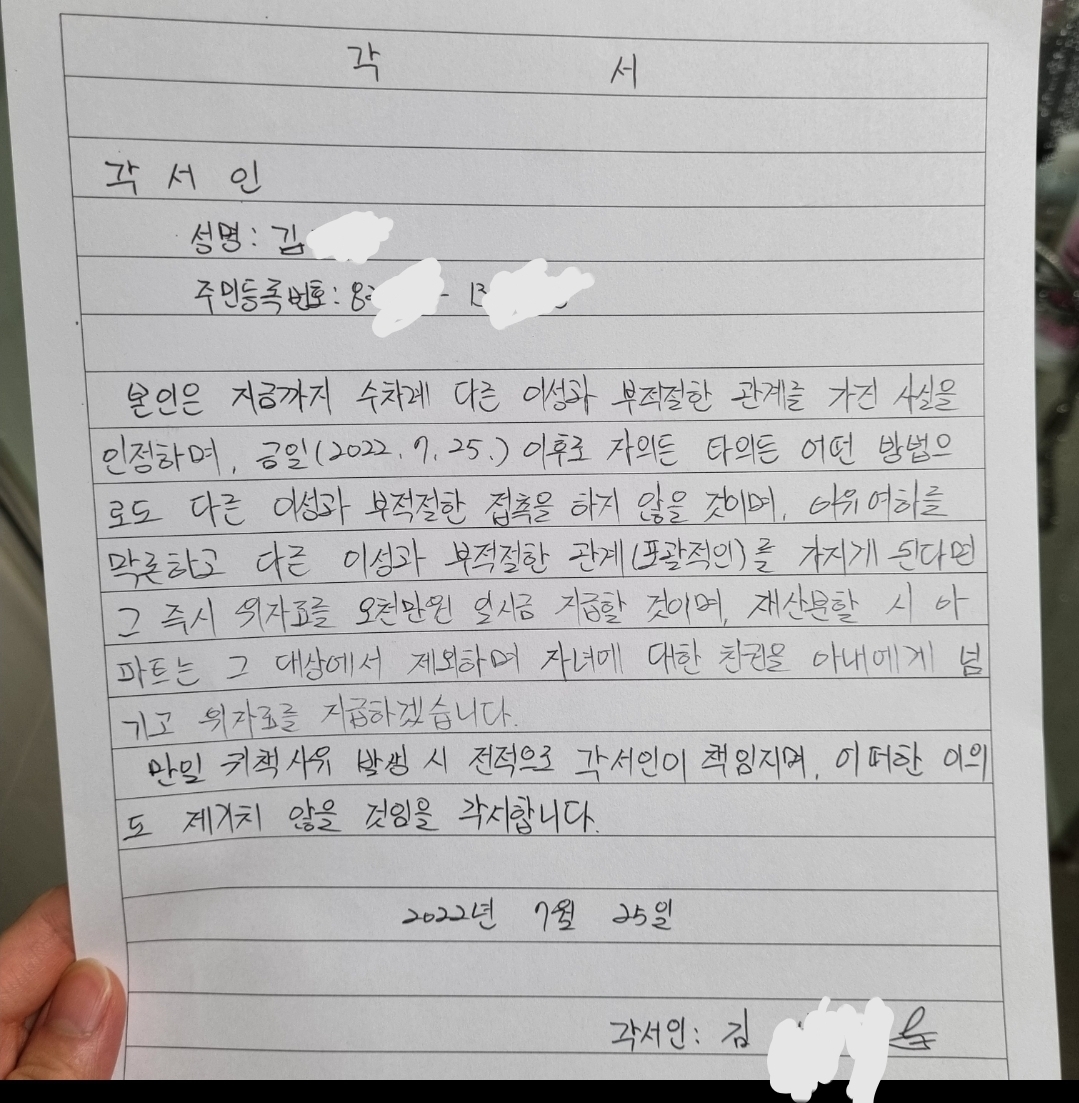 각 서
각 서 인
성명 : 김
주민등록번호 : 8 - 13
본인은 지금까지 수차례 다른 이성과 부적절한 관계를 가진 사실을
인정하며, 금일(2022. 7. 25.) 이후로 자의든 타의든 어떤 방법으
로도 다른 이성과 부적절한 접촉을 하지 않을 것이며, 이유여하를
막론하고 다른 이성과 부적절한 관계(포괄적인)를 가지게 된다면
그 즉시 위자료를 오천만원 일시금 지급할 것이며, 재산분할 시 아
파트는 그 대상에서 제외하며 자녀에 대한 친권을 아내에게 넘
기고 위자료를 지급하겠습니다.
만일 귀책사유 발생 시 전적으로 각서인이 책임지며, 어떠한 이의
도 제기치 않을 것임을 각서합니다.
2022년 7월 25일
각서인 : 김